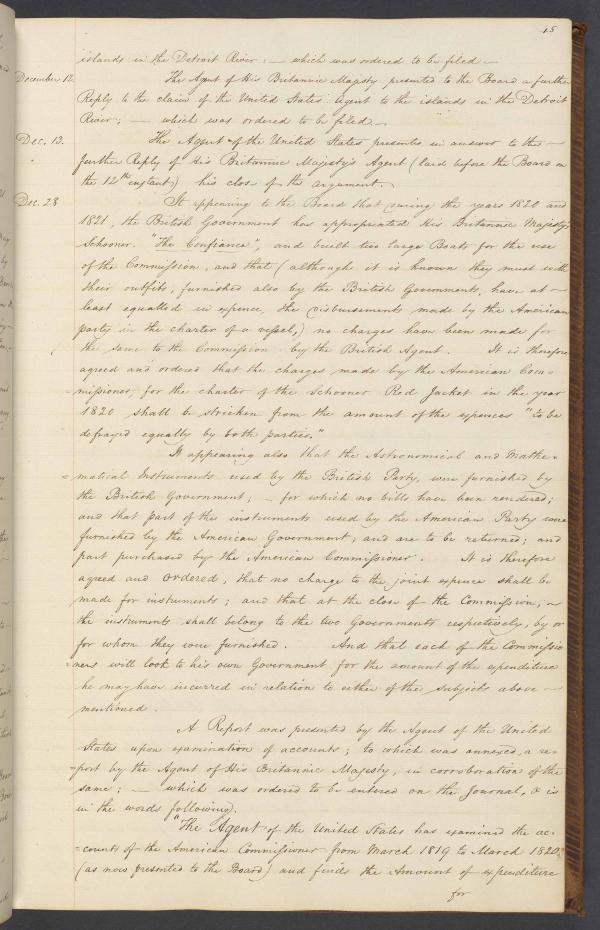 15
islands in the Detroit River; — which was ordered to be filed —
December 12. The Agent of His Britannic Majesty presented to the Board a further
Reply to the claim of the United States Agent to the islands in the Detroit
River; — which was ordered to be filed. —
Dec. 13. The Agent of the United States presents in answer to the —
further Reply of His Britannic Majesty's Agent (laid before the Board on
the 12th instant) his close of the argument. —
Dec. 28 It appearing to the Board that during the years 1820 and
1821, the British Government has appropriated His Britannic Majesty's
Schooner "The Confiance", and built two large Boats for the use
of the Commission, and that (although it is known they must with
their outfits, furnished also by the British Government, have at —
least equalled in expence, the disbursements made by the American
party in the charter of a vessel,) no charges have been made for
the same to the Commission by the British Agent. It is therefore
agreed and ordered that the charges made by the American Com-
=missioner, for the charter of the Schooner Red Jacket in the year
1820 shall be stricken from the amount of the expences "to be
defrayed equally by both parties."
It appearing also that the Astronomical and Mathe-
=matical Instruments used by the British Party, were furnished by
the British Government; — for which no bills have been rendered;
and that part of the instruments used by the American Party were
furnished by the American Government, and are to be returned; and
part purchased by the American Commissioner. It is therefore
agreed and Ordered, that no charge to the joint expence shall be
made for instruments; and that at the close of the Commission, ~
the instruments shall belong to the two Governments respectively, by or
for whom they were furnished. And that each of the Commissio
=ners will look to his own Government for the amount of the expenditure
he may have incurred in relation to either of the subjects above —
mentioned.
A Report was presented by the Agent of the United
States upon examination of accounts; to which was annexed, a re-
=port by the Agent of His Britannic Majesty, in corroboration of the
same; — which was ordered to be entered on the Journal, & is
in the words following.
"The Agent of the United States has examined the ac-
=counts of the American Commissioner from March 1819 to March 1820,
(as now presented to the Board) and finds the Amount of expenditure
for